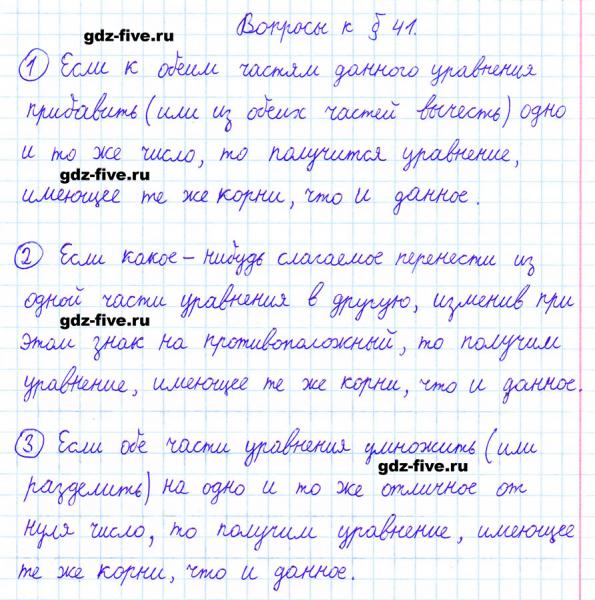 gdz-five.ru
Вопросы к § 41.
1 Если к обеим частям данного уравнения
прибавить (или из обеих частей вычесть) одно
и то же число, то получится уравнение,
gdz-five.ru
имеющее те же корни, что и данное.
2 Если какое-нибудь слагаемое перенести из
одной части уравнения в другую, изменив при
gdz-five.ru
этом знак на противоположный, то получим
уравнение, имеющее те же корни, что и данное.
3 Если обе части уравнения умножить (или
gdz-five.ru
разделить) на одно и то же отличное от
нуля число, то получим уравнение, имеющее
те же корни, что и данное.